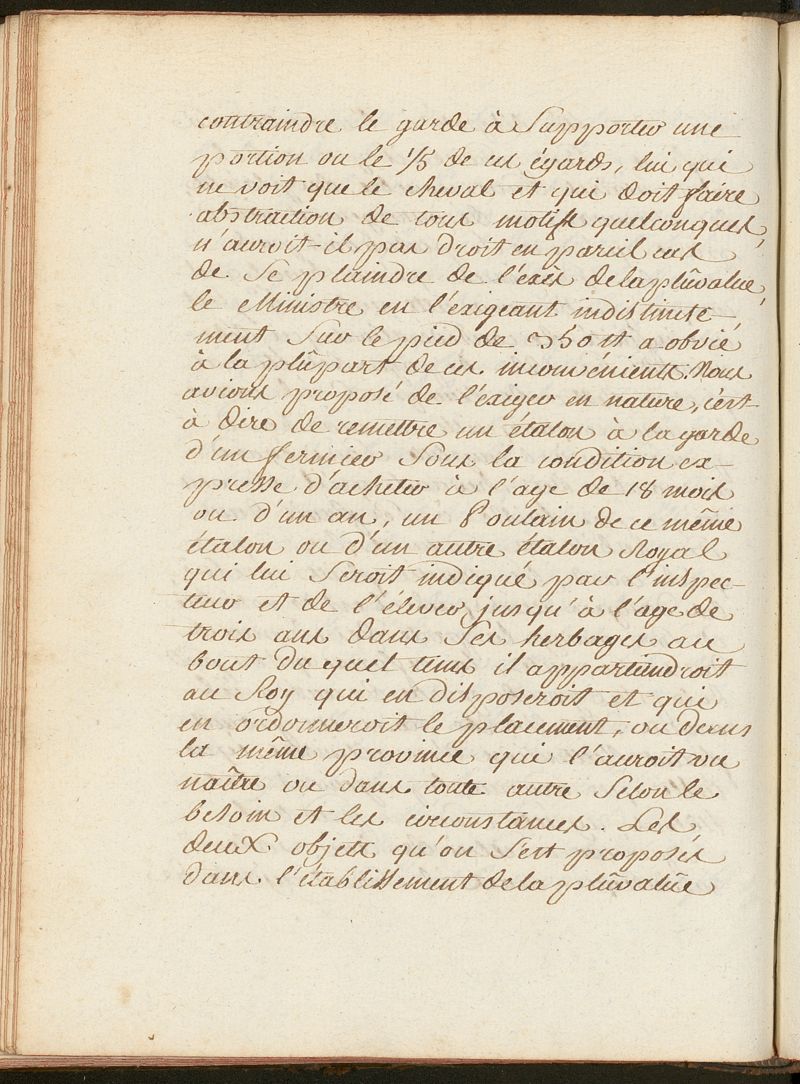 contraindre le garde à Supporter une
portion ou le 1/3 de ces égards, lui qui
ne voit que le cheval et qui doit faire
abstraction de tous motifs quelconques,
n'auroit-il pas droit en pareil cas
de Se plaindre de l'exès de la plûvalüe,
le Ministre en l'exigeant indistincte-
ment Sur le pied de 350 ₶ a obvié
à la plûpart de ces inconvénients. Nous
avions proposé de l'éxiger en nature, c'ést-
à dire de remettre un étalon à la garde
d'un fermier Sous la condition ex-
presse d'acheter à l'age de 18 mois
ou d'un an, un Poulain de ce même
étalon ou d'un autre étalon Royal
qui lui Seroit indiqué par l'inspec-
teur et de l'élever jusqu'à l'age de
trois ans dans Ses herbages au
bout du quel tems il appartiendroit
au Roy qui en disposeroit et qui
en ordonneroit le placement, ou dans
la même province qui l'auroit vu
naître ou dans toute autre Selon le
besoin et les circonstances. Les
deux objets qu'on S'est proposés
dans l'établissement de la plûvalüe